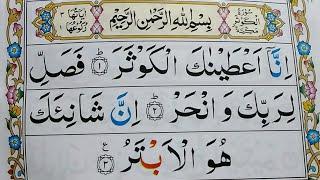 سُوْرَةُ الْكَوْثَرِ مَكِّيَّةٌ
بِسْمِ اللّٰهِ الرَّحْمٰنِ الرَّحِیْمِ
اٰیَاتُهَا ٣ رُكُوْعُهَا
اِنَّاۤ اَعْطَیْنٰكَ الْكَوْثَرَ ۟ؕ۱ فَصَلِّ
لِرَبِّكَ وَ انْحَرْ ۟ؕ۲ اِنَّ شَانِئَكَ
هُوَ الْاَبْتَرُ ۟۳ ع